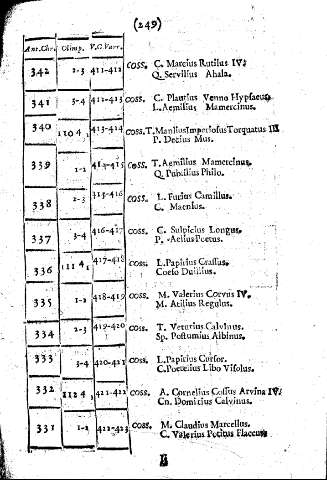 (249)
Ant.Chr. Olimp. V.C.Varr.
342 2-3 411-412 COSS. C. Marcius Rutilus IV.
Q. Servilius Ahala.
341 3-4 412-413 COSS. C. Plautius Venno Hypsaeus.
L. Aemilius Mamercinus.
340 110 4 1 413-414 COSS. T. Manlius Imperiosus Torquatus III
P. Decius Mus.
339 1-2 414-415 COSS. T. Aemilius Mamercinus.
Q. Publilius Philo.
338 2-3 415-416 COSS. L. Furius Camillus.
C. Maenius.
337 3-4 416-417 COSS. C. Sulpicius Longus.
P. Aelius Poetus.
336 111 4 1 417-418 COSS. L. Papirius Crassus.
Coeso Duillius.
335 1-2 418-419 COSS. M. Valerius Corvus IV.
M. Atilius Regulus.
334 2-3 419-420 COSS. T. Veturius Calvinus.
Sp. Postumius Albinus.
333 3-4 420-421 COSS. L. Papirius Cursor.
C. Poetelius Libo Visolus.
332 112 4 1 421-422 COSS. A. Cornelius Cossus Arvina IV.
Cn. Domitius Calvinus.
331 1-2 422-423 COSS. M. Claudius Marcellus.
C. Valerius Potitus Flaccus